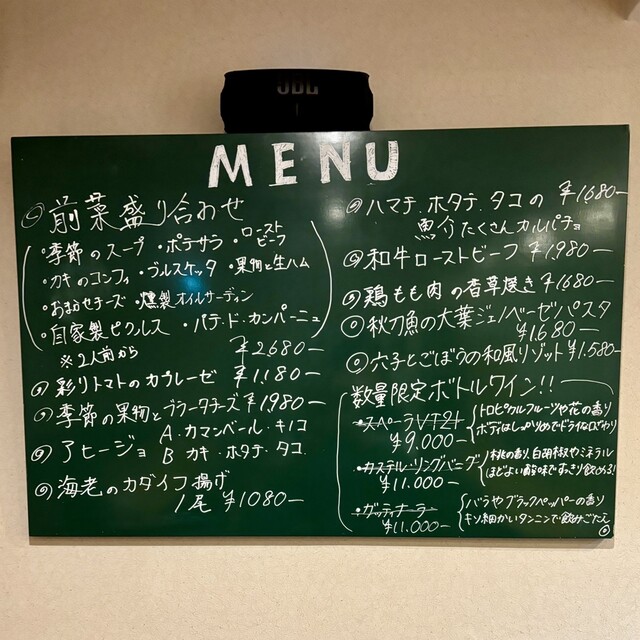 JBL
MENU
前菜盛り合わせ
・季節のスープ ・ポテサラ ・ローストビーフ
・カキのコンフィ ・ブルスケッタ ・果物と生ハム
・おまかせチーズ ・燻製オイルサーディン
・自家製ピクルス ・パテ・ド・カンパーニュ
※2人前から ¥2680-
彩りトマトのカプレーゼ ¥1,180-
季節の果物とブラータチーズ ¥1,980-
アヒージョ A.カマンベール・キノコ
B カキ・ホタテ・タコ
海老のカダイフ揚げ
1尾 ¥1080-
ハマチ、ホタテ、タコの ¥1,680-
魚介たくさんカルパチョ
和牛ローストビーフ ¥1,980-
鶏もも肉の香草焼き ¥1680-
秋刀魚の大葉ジェノベーゼパスタ
¥1,680-
穴子とごぼうの和風リゾット ¥1,580-
数量限定ボトルワイン!!
・スペーラVT21
¥9,000-
トロピカルフルーツや花の香り
ボディはしっかりめでドライな口あたり
・カステル・リングバーグ
¥11,000-
桃の香り、白胡椒やミネラル
ほどよい酸味ですっきり飲める!
・ガッティナーラ
¥11,000-
バラやブラックペッパーの香り
キメ細かいタンニンで飲みごたえ◎